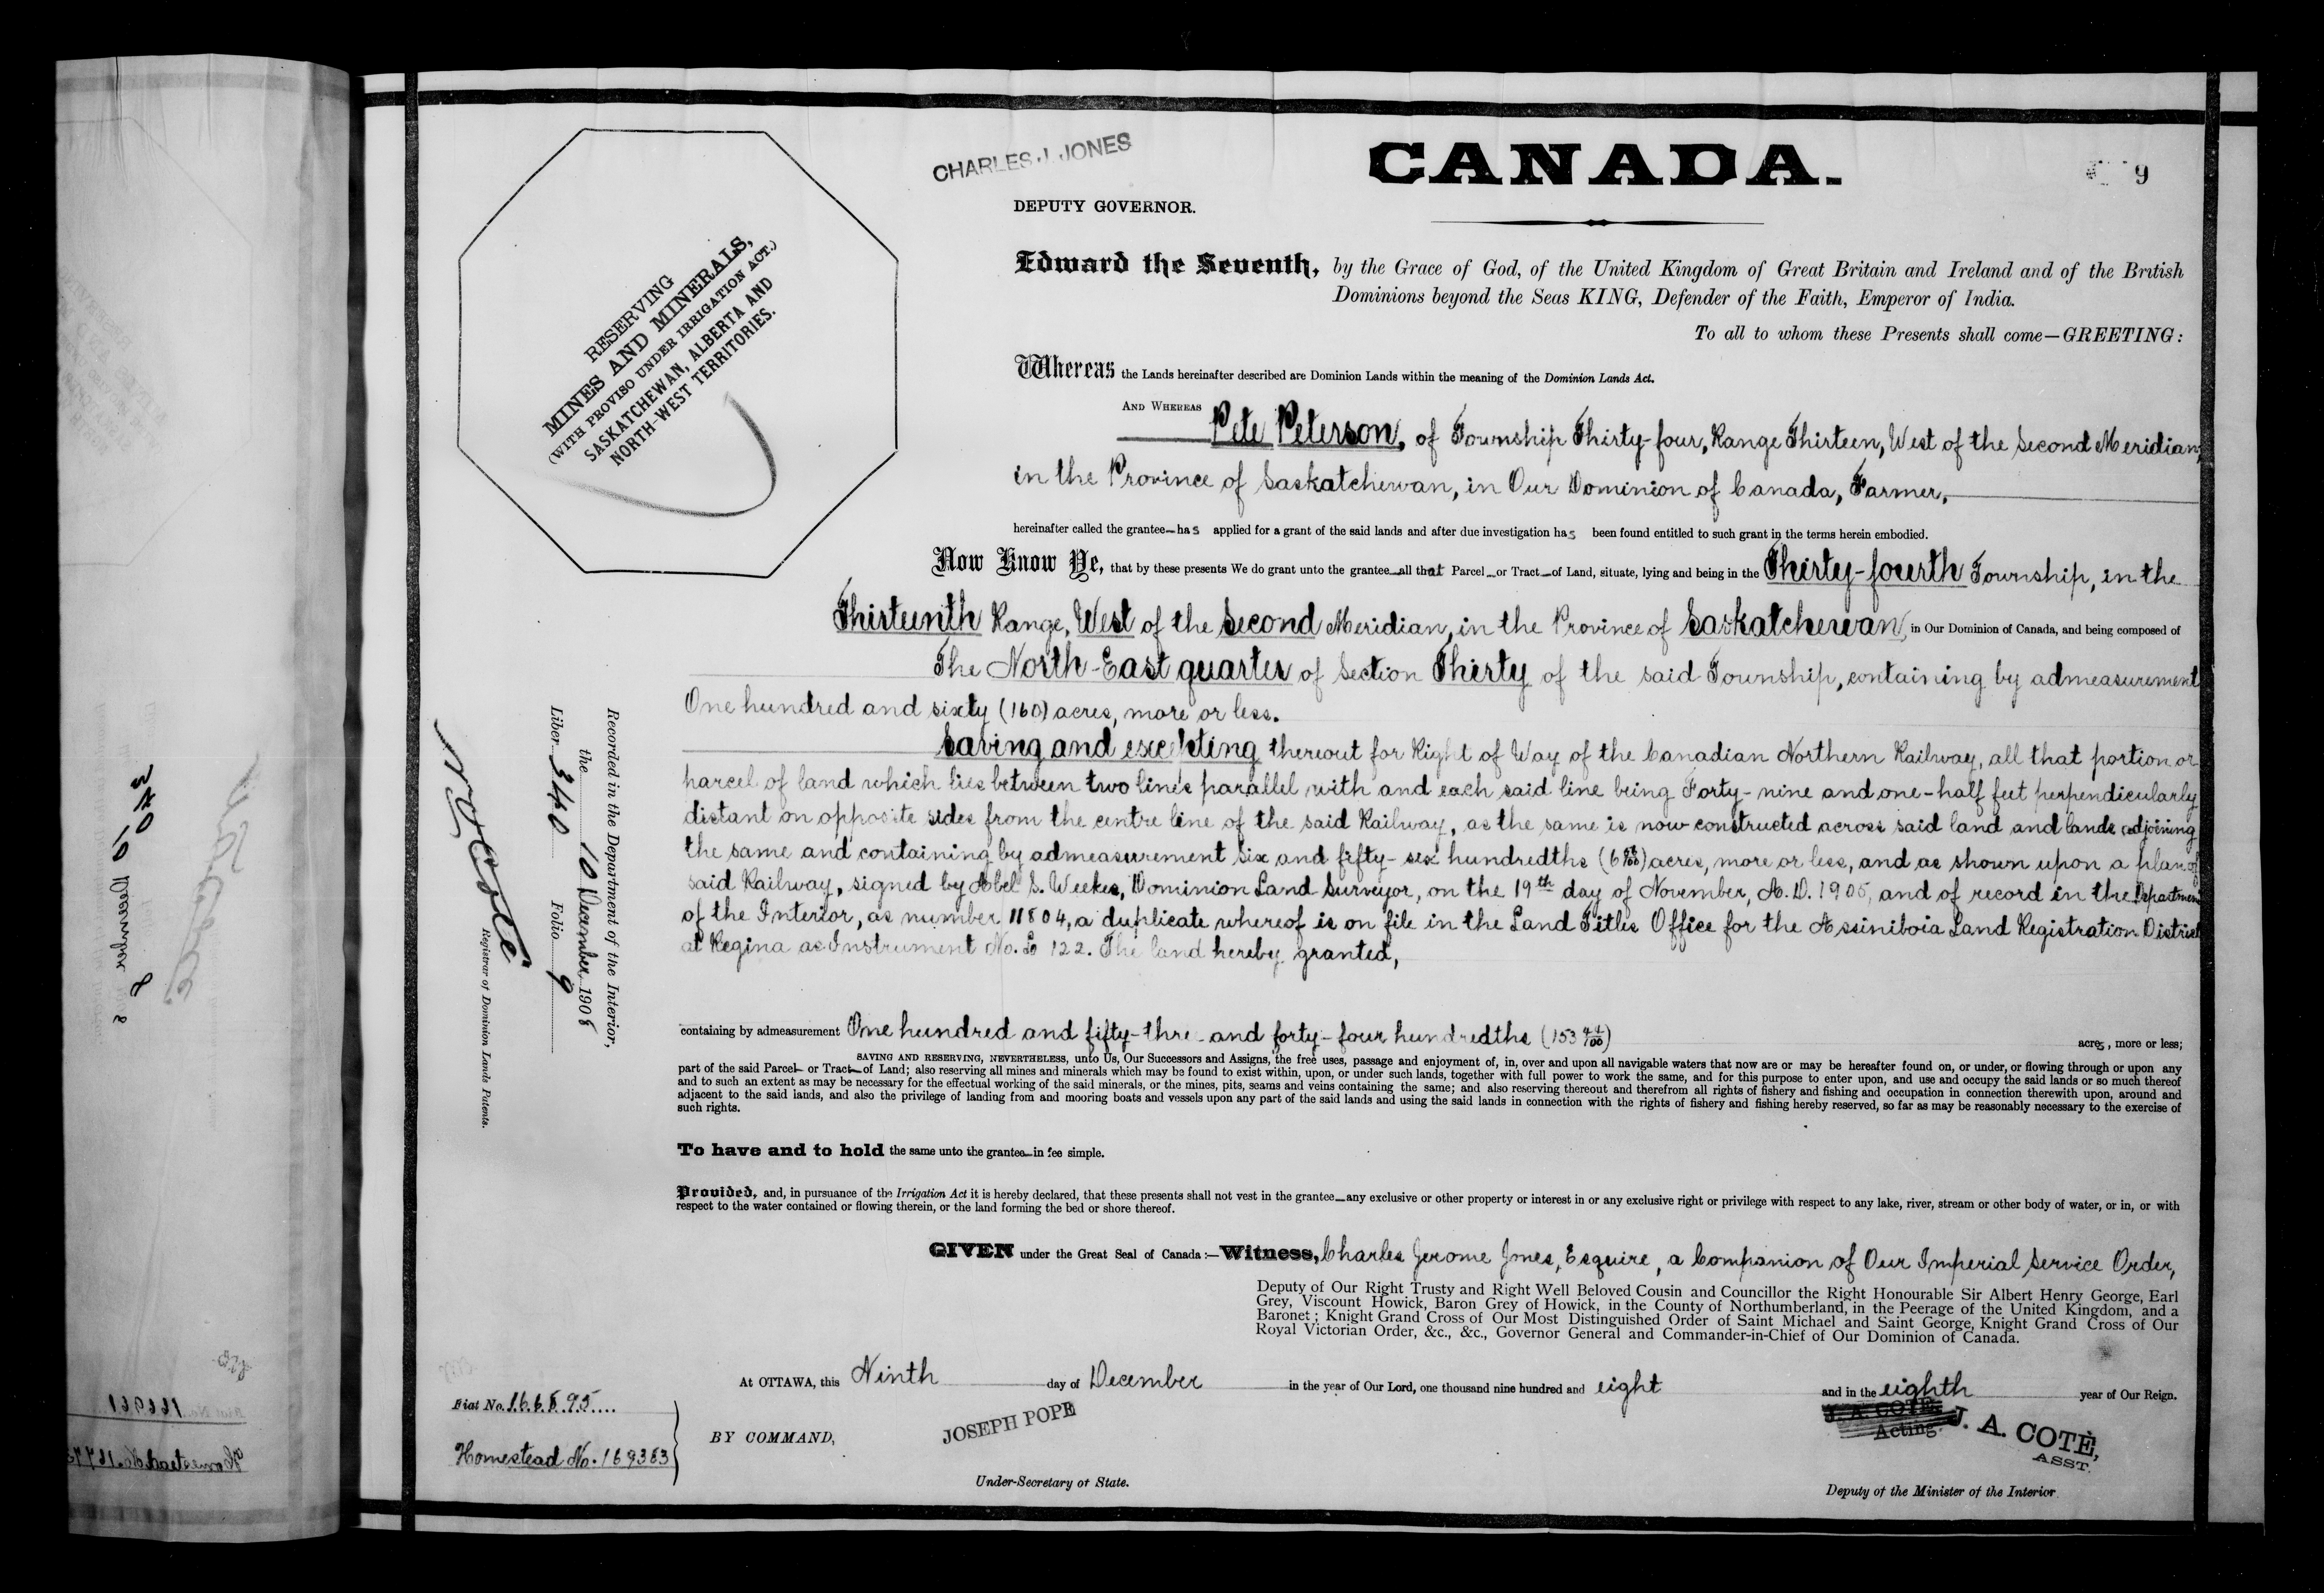 CHARLES J. JONES
CANADA.
9
DEPUTY GOVERNOR.
RESERVING
MINES AND MINERALS,
(WITH PROVISO UNDER IRRIGATION ACT.)
SASKATCHEWAN, ALBERTA AND
NORTH-WEST TERRITORIES.
Edward the Seventh, by the Grace of God, of the United Kingdom of Great Britain and Ireland and of the British
Dominions beyond the Seas KING, Defender of the Faith, Emperor of India.
To all to whom these Presents shall come—GREETING:
Whereas the Lands hereinafter described are Dominion Lands within the meaning of the Dominion Lands Act.
AND WHEREAS
Pete Peterson, of Township Thirty-four, Range Thirteen, West of the Second Meridian,
in the Province of Saskatchewan, in Our Dominion of Canada, Farmer,
hereinafter called the grantee—has applied for a grant of the said lands and after due investigation has been found entitled to such grant in the terms herein embodied.
Now Know Ye, that by these presents We do grant unto the grantee—all that Parcel—or Tract—of Land, situate, lying and being in the Thirty-fourth Township, in the
Thirteenth Range, West of the Second Meridian, in the Province of Saskatchewan, in Our Dominion of Canada, and being composed of
The North-East quarter of Section Thirty of the said Township, containing by admeasurement
One hundred and sixty (160) acres, more or less.
Saving and excepting thereout for Right of Way of the Canadian Northern Railway, all that portion or
parcel of land which lies between two lines parallel with and each said line being Forty-nine and one-half feet perpendicularly
distant on opposite sides from the centre line of the said Railway, as the same is now constructed across said land and lands adjoining
the same and containing by admeasurement Six and fifty-six hundredths (6 56/100) acres, more or less, and as shown upon a plan of
said Railway, signed by Abel S. Weekes, Dominion Land Surveyor, on the 19th day of November, A.D. 1905, and of record in the Department
of the Interior, as number 11804, a duplicate whereof is on file in the Land Titles Office for the Assiniboia Land Registration District
at Regina as Instrument No. 122. The land hereby granted,
containing by admeasurement One hundred and fifty-thre and forty-four hundredths (153 44/100) acres, more or less;
SAVING AND RESERVING, NEVERTHELESS, unto Us, Our Successors and Assigns, the free uses, passage and enjoyment of, in, over and upon all navigable waters that now are or may be hereafter found on, or under, or flowing through or upon any
part of the said Parcel— or Tract—of Land; also reserving all mines and minerals which may be found to exist within, upon, or under such lands, together with full power to work the same, and for this purpose to enter upon, and use and occupy the said lands or so much thereof
and to such an extent as may be necessary for the effectual working of the said minerals, or the mines, pits, seams and veins containing the same; and also reserving thereout and therefrom all rights of fishery and fishing and occupation in connection therewith upon, around and
adjacent to the said lands, and also the privilege of landing from and mooring boats and vessels upon any part of the said lands and using the said lands in connection with the rights of fishery and fishing hereby reserved, so far as may be reasonably necessary to the exercise of
such rights.
To have and to hold the same unto the grantee—in fee simple.
Provided, and, in pursuance of the Irrigation Act it is hereby declared, that these presents shall not vest in the grantee—any exclusive or other property or interest in or any exclusive right or privilege with respect to any lake, river, stream or other body of water, or in, or with
respect to the water contained or flowing therein, or the land forming the bed or shore thereof.
GIVEN under the Great Seal of Canada:—Witness, Charles Jerome Jones, Esquire, a Companion of Our Imperial Service Order,
Deputy of Our Right Trusty and Right Well Beloved Cousin and Councillor the Right Honourable Sir Albert Henry George, Earl
Grey, Viscount Howick, Baron Grey of Howick, in the County of Northumberland, in the Peerage of the United Kingdom, and a
Baronet; Knight Grand Cross of Our Most Distinguished Order of Saint Michael and Saint George, Knight Grand Cross of Our
Royal Victorian Order, &c., &c., Governor General and Commander-in-Chief of Our Dominion of Canada.
At OTTAWA, this Ninth day of December in the year of Our Lord, one thousand nine hundred and eight and in the eighth year of Our Reign.
BY COMMAND,
JOSEPH POPE
Under-Secretary of State.
J. A. COTÉ,
Acting
J. A. COTÉ,
ASST.
Deputy of the Minister of the Interior
Fiat No. 166895
Homestead No. 169383
Recorded in the Department of the Interior,
the 10 December 1908
Liber 340 Folio 9
N O Coté
Registrar of Dominion Lands Patents.
340
10 December 8
8